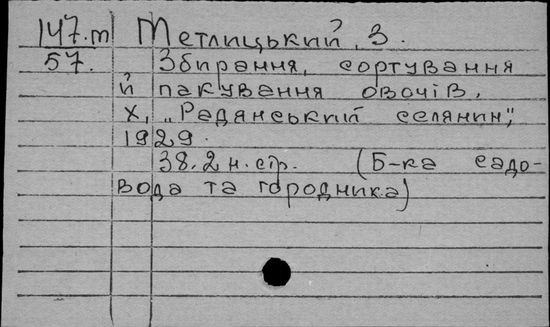 147.т Тетлицький, З.
57. Збирання, сортування
й пакування овочів.
Х, „Радянський селянин",
1929.
38. 2 н. стр. (Б-ка садо-
вода та городника)